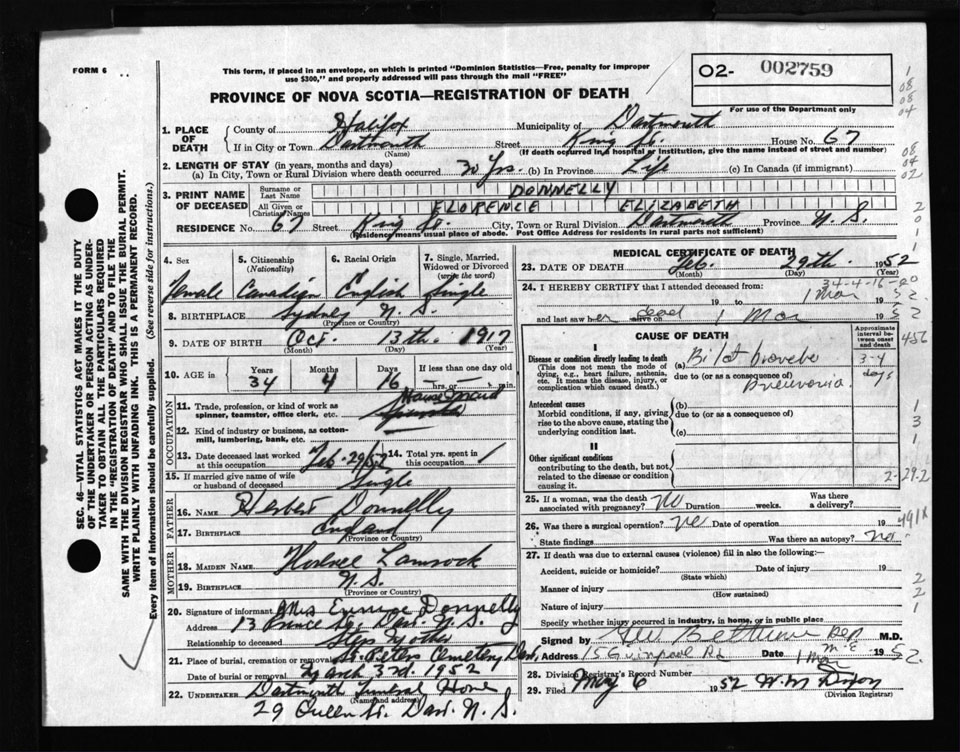 FORM 6
This form, if placed in an envelope, on which is printed "Dominion Statistics—Free, penalty for improper
use $300," and properly addressed will pass through the mail "FREE"
PROVINCE OF NOVA SCOTIA—REGISTRATION OF DEATH
02- 002759
For use of the Department only
1. PLACE OF DEATH
County of Halifax Municipality of Dartmouth
If in City or Town Dartmouth Street King St. House No. 67
(Name) (If death occurred in a hospital or Institution, give the name instead of street and number)
2. LENGTH OF STAY (in years, months and days)
(a) In City, Town or Rural Division where death occurred 30 Yrs. (b) In Province Life (c) In Canada (if immigrant)
3. PRINT NAME OF DECEASED
Surname or Last Name DONNELLY
All Given or Christian Names FLORENCE ELIZABETH
RESIDENCE No. 67 Street King St. City, Town or Rural Division Dartmouth Province N. S.
(Residence means usual place of abode. Post Office Address for residents in rural parts not sufficient)
4. Sex
Female
5. Citizenship
(Nationality)
Canadian
6. Racial Origin
English
7. Single, Married,
Widowed or Divorced
(write the word)
Single
8. BIRTHPLACE Sydney N. S.
(Province or Country)
9. DATE OF BIRTH Oct. 13th. 1917
(Month) (Day) (Year)
10. AGE in Years Months Days If less than one day old
34 4 16 hrs. or min.
OCCUPATION
11. Trade, profession, or kind of work as
spinner, teamster, office clerk, etc. House Maid
12. Kind of industry or business, as cotton-
mill, lumbering, bank, etc.
13. Date deceased last worked
at this occupation Feb. 29/52
14. Total yrs. spent in
this occupation 1
15. If married give name of wife
or husband of deceased Single
FATHER
16. NAME Herbert Donnelly
17. BIRTHPLACE England
(Province or Country)
MOTHER
18. MAIDEN NAME
19. BIRTHPLACE N. S.
(Province or Country)
20. Signature of informant Mrs Donnelly
Address 13 Prince St. Dart. N. S.
Relationship to deceased Step Mother
21. Place of burial, cremation or removal St. Peters Cemetery Dart.
Date of burial or removal March 3rd. 1952
22. UNDERTAKER Dartmouth Funeral Home
(Name and address)
29 Queen St. Dart. N. S.
MEDICAL CERTIFICATE OF DEATH
23. DATE OF DEATH Feb. 29th. 1952
(Month) (Day) (Year)
34-4-16-20
24. I HEREBY CERTIFY that I attended deceased from:
19 to 1 Mar 1952.
and last saw her dead alive on 1 Mar 1952
CAUSE OF DEATH
Approximate interval between onset and death
I
Disease or condition directly leading to death
(This does not mean the mode of
dying, e.g., heart failure, asthenia,
etc. It means the disease, injury, or
complication which caused death.)
(a)
due to (or as a consequence of)
Pneumonia
3-4
days
Antecedent causes
Morbid conditions, if any, giving
rise to the above cause, stating the
underlying condition last.
(b)
due to (or as a consequence of)
(c)
II
Other significant conditions
contributing to the death, but not
related to the disease or condition
causing it
2-29-2
25. If a woman, was the death
associated with pregnancy? No Duration weeks. Was there
a delivery?
26. Was there a surgical operation? No Date of operation 19
State findings Was there an autopsy? No
27. If death was due to external causes (violence) fill in also the following:—
Accident, suicide or homicide? Date of injury 19
(State which)
Manner of injury
(How sustained)
Nature of injury
Specify whether injury occurred in industry, in home, or in public place
Signed by M.D.
M.E.
Address 15 Quinpool Rd Date 1 Mar 1952.
28. Division Registrar's Record Number
29. Filed May 6 1952 W. M. Dixon
(Division Registrar)
SEC. 46—VITAL STATISTICS ACT MAKES IT THE DUTY
OF THE UNDERTAKER OR PERSON ACTING AS UNDER-
TAKER TO OBTAIN ALL THE PARTICULARS REQUIRED
IN THE "REGISTRATION OF DEATH" AND TO FILE THE
SAME WITH THE DIVISION REGISTRAR WHO SHALL ISSUE THE BURIAL PERMIT.
WRITE PLAINLY WITH UNFADING INK. THIS IS A PERMANENT RECORD.
Every item of information should be carefully supplied. (See reverse side for instructions.)
1
08
08
04
08
04
02
2
0
1
1
456
1
3
1
491X
2
2
1